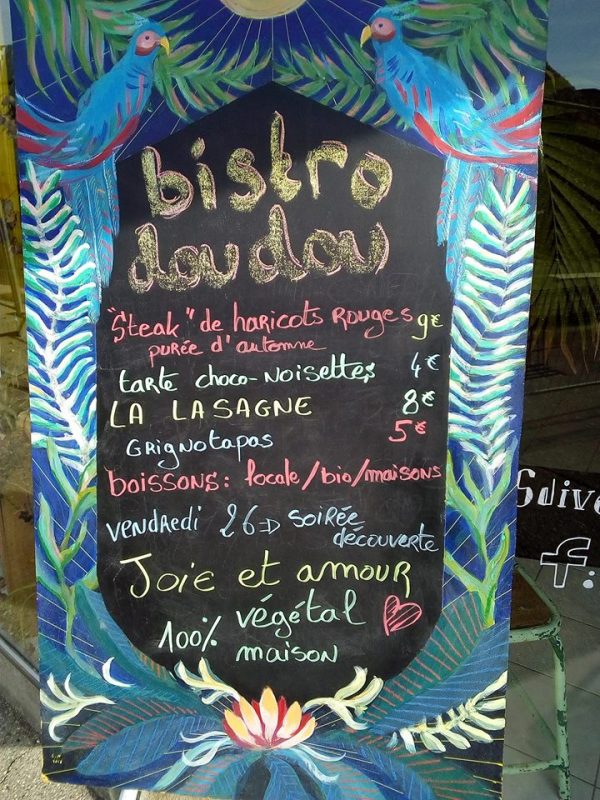 bistro
doudou
"Steak" de haricots Rouges 9€
purée d'automne
tarte choco-Noisettes 4€
LA LASAGNE 8€
Grignotapas 5€
boissons: locale/bio/maisons
vendredi 26 => soirée
découverte
Joie et amour
100% végétal
maison
Sdive
f: